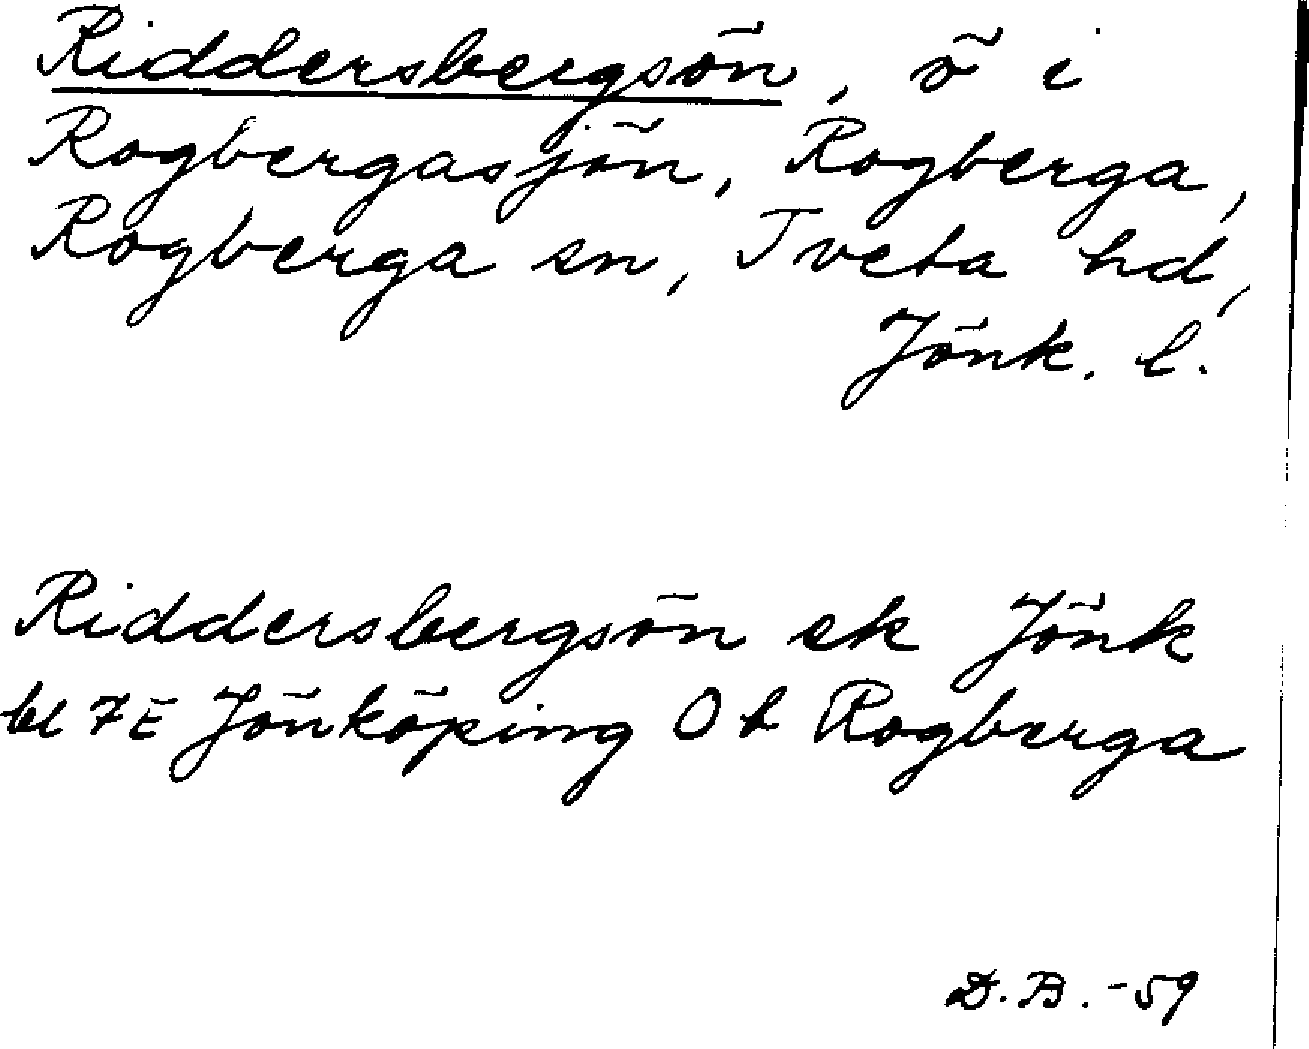 Riddersbergsön, ö i
Rogbergasjön, Rogberga,
Rogberga sn, Tveta hd,
Jönk. l.
Riddersbergsön ek Jönk
bl 7E Jönköping Ob Rogberga
D.B. -59